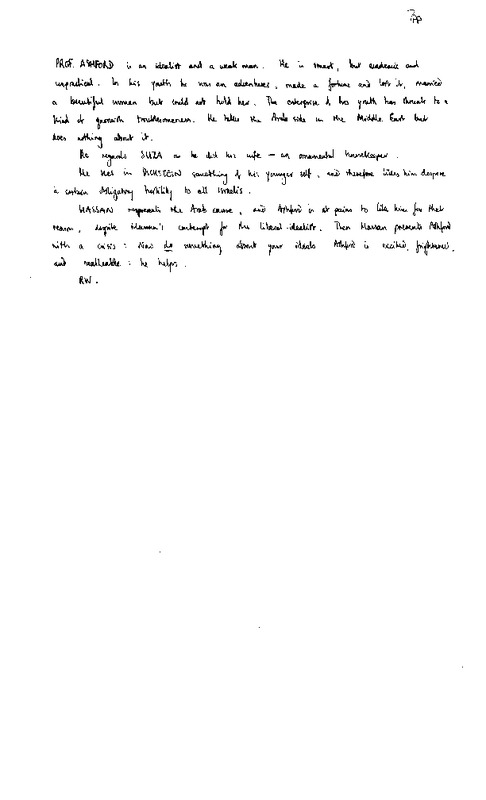 PROF. ASHFORD is an idealist and a weak man. He is smart, but academic and
unpractical. In his youth he was an adventurer, made a fortune and lost it, married
a beautiful woman but could not hold her. The enterprise of his youth has shrunk to a
kind of gnomish troublesomeness. He takes the Arab side in the Middle East but
does nothing about it.
He regards SUZA as he did his wife — an ornamental housekeeper.
He sees in DICKSTEIN something of his younger self, and therefore likes him despite
a certain obligatory hostility to all Israelis.
HASSAN represents the Arab cause, and Ashford is at pains to like him for that
reason, despite Hassan's contempt for the liberal-idealist. Then Hassan presents Ashford
with a crisis: Now do something about your ideals. Ashford is excited, frightened,
and malleable: he helps.
RW.